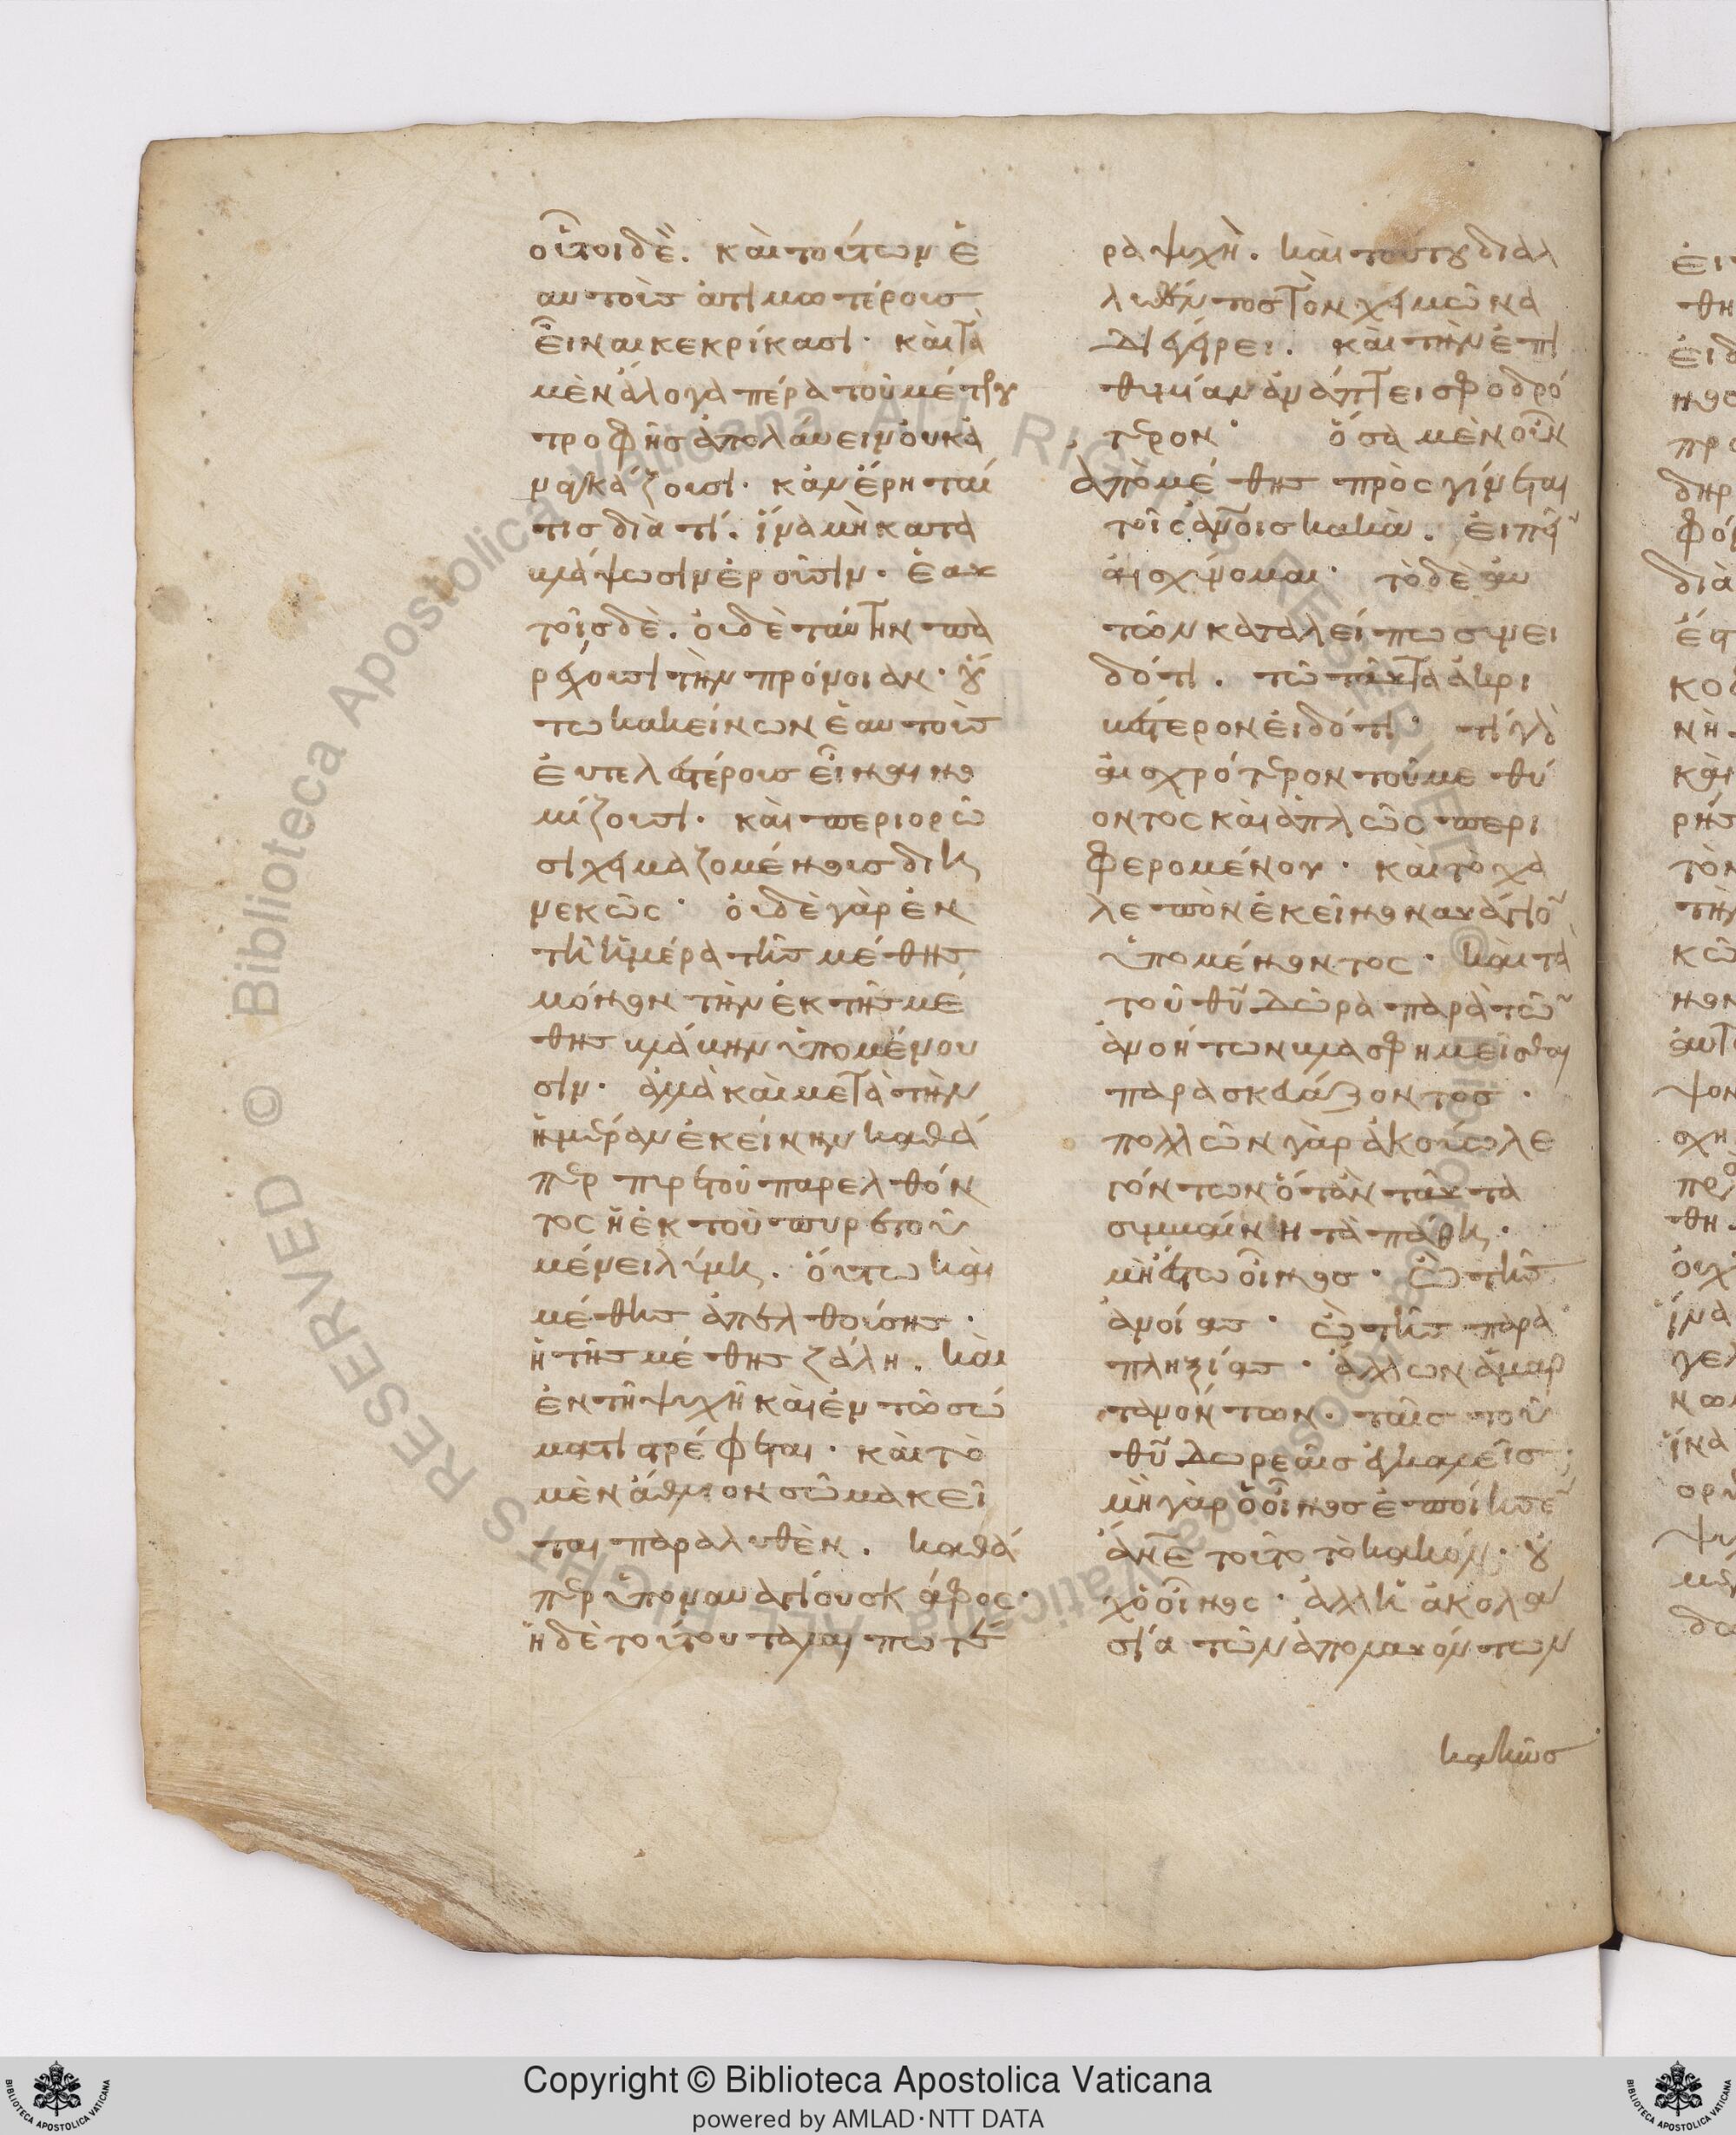 οὗτοι δὲ. καὶ τούτων ἑ
αυτοὺς ἀτιμωτέρους
εἶναι κεκρίκασι· καὶ τὰ
μὲν ἄλογα πέρα τοῦ μέτρου
τροφῆς ἀπολάυειν οὐκ ἀ
ναγκάζουσι· κἂν ἔρηταί
τις διὰ τί. ἵνα μὴ κατα
βλάψωσιν ἐροῦσιν· ἑαυ
τοῖς δὲ. οὐδὲ ταύτην πα
ρέχουσι τὴν πρόνοιαν· οὕ
τω κακείνων ἑαυτοὺς
ἐυτελεστέρους εἶναι νο
μίζουσι· καὶ περιορῶ
σι χειμαζομένους διη
νεκῶς· οὐδὲ γὰρ ἐν
τῆ ἡμέρα τῆς μέθης
μόνον τὴν ἐκ τῆς μέ
θης βλάβην ὑπομένου
σιν· ἀλλὰ καὶ μετὰ τὴν
ἡμέραν ἐκείνην καθά
περ πυρετοῦ παρελθόν
τος ἡ ἐκ τοῦ πυρετοῦ
μένει λύμη. οὕτω καὶ
μέθης ἀπελθούσης·
ἡ τῆς μέθης ζάλη. καὶ
ἐν τῆ ψυχῆ καὶ ἐν τῶ σώ
ματι στρέφεται· καὶ τὸ
μὲν ἄθλιον σῶμα κεῖ
ται παραλυθὲν. καθά
περ ὑπὸ ναυαγίου σκάφος·
ἡ δὲ τούτου ταλαιπωροτέ
ρα ψυχὴ. καὶ τούτου διαλ
λυθέντος τὸν χειμῶνα
διεγείρει. καὶ τὴν ἐπι
θυμίαν ἀνάπτει σφοδρό
τερον· ὅσα μὲν οὖν
ἀπὸ μέθης προσγίνεται
τοῖς ἀνοις κακὰ. ἐιπεῖν
αἰσχύνομαι· τὸ δὲ ἀυ
τῶν καταλείπω συνει
δότι. τῶ ταῦτα ἀκρι
βέστερον εἰδότι· τί γὰρ
ἀισχρότερον τοῦ μεθύ
οντος καὶ ἁπλῶς περι
φερομένου· καὶ τὸ χα
λεπὸν ἐκεῖνον ναυάγιον
ὑπομένοντος· καὶ τὰ
τοῦ θῦ δῶρα παρὰ τῶν
ἀνοήτων βλασφημεῖσθαι
παρασκευάζοντος·
πολλῶν γὰρ ἀκούω λε
γόντων ὅταν ταῦτα
συμβαίνη τὰ πάθη·
μὴ ἔστω οἶνος· ὢ τῆς
ἀνοίας· ὢ τῆς παρα
πληξίας· ἄλλων ἁμαρ
τανόντων. ταῖς τοῦ
θῦ δωρεαῖς ἐγκαλεῖς;
μὴ γὰρ ὁ οἶνος ἐποίησεν
ἄνε τοῦτο τὸ κακόν. οὐ
χ ὁ οἶνος· ἀλλ ἡ ἀκολα
σία τῶν ἀπολαυόντων
κακῶς
Copyright © Biblioteca Apostolica Vaticana
powered by AMLAD·NTT DATA